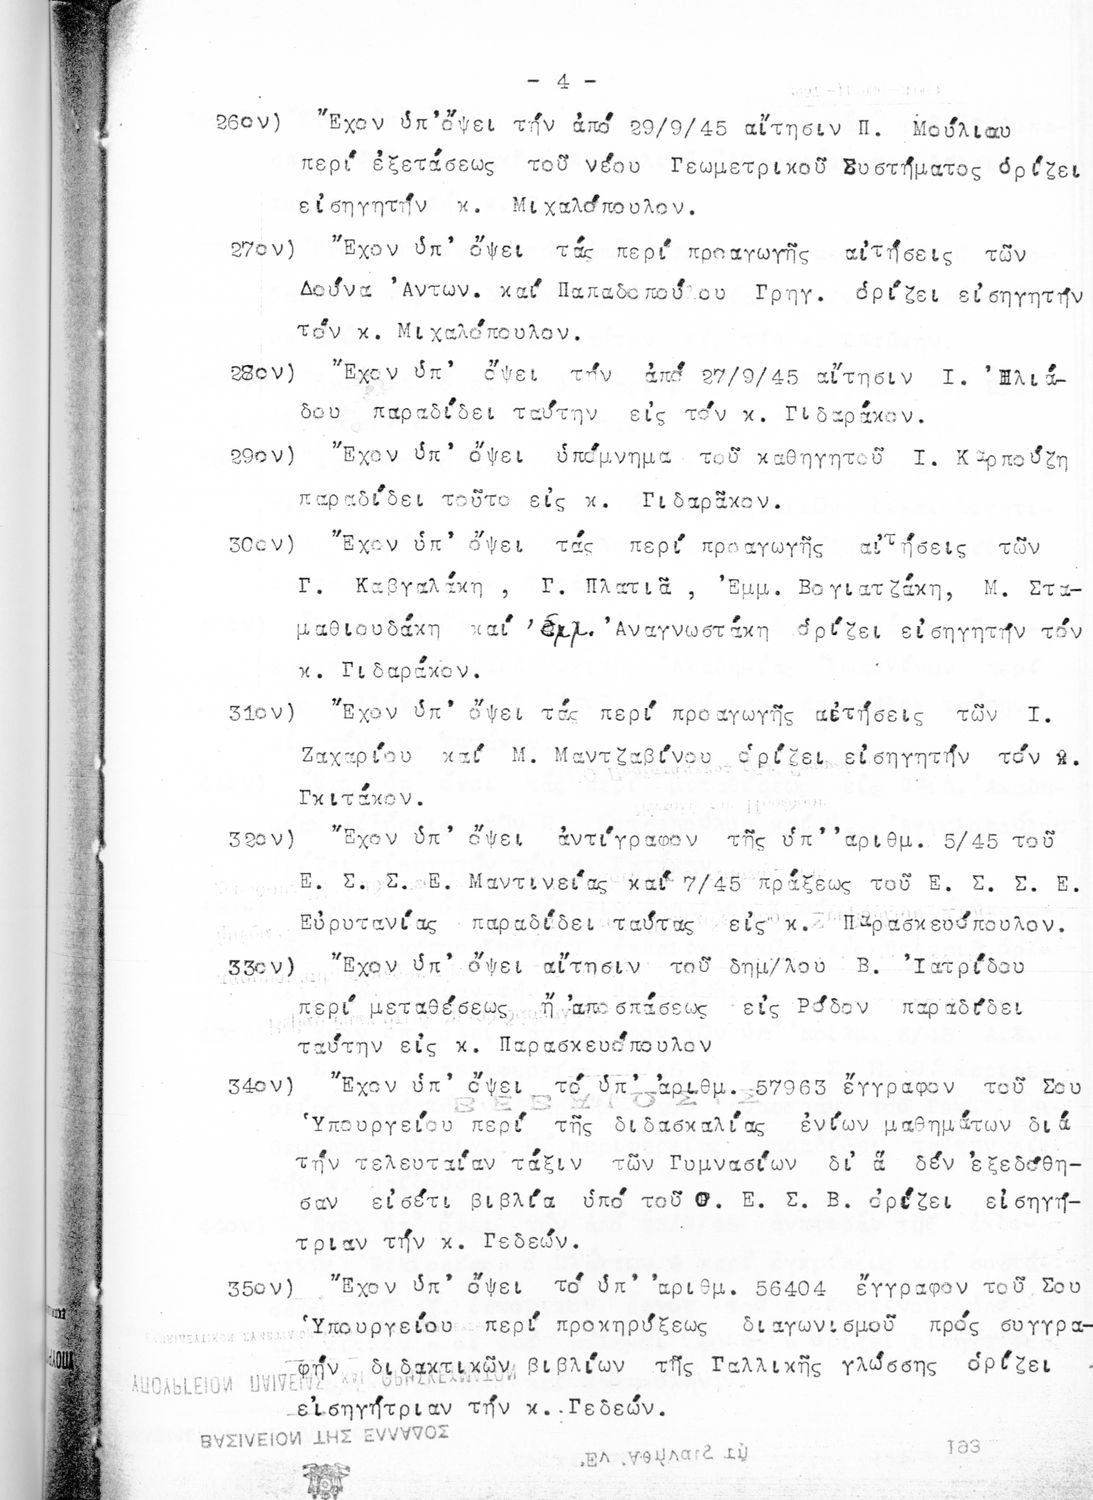 - 4 -
26ον) Ἔχον ὑπ'ὄψει τήν ἀπό 29/9/45 αἴτησιν Π. Μούλιου
περί ἐξετάσεως τοῦ νέου Γεωμετρικοῦ Συστήματος ὁρίζει
εἰσηγητήν κ. Μιχαλόπουλον.
27ον) Ἔχον ὑπ' ὄψει τάς περί προαγωγῆς αἰτήσεις τῶν
Δούνα Ἀντων. καί Παπαδοπούλου Γρηγ. ὁρίζει εἰσηγητήν
τόν κ. Μιχαλόπουλον.
28ον) Ἔχον ὑπ' ὄψει τήν ἀπό 27/9/45 αἴτησιν Ι. Ἠλιά-
δου παραδίδει ταύτην εἰς τόν κ. Γιδαράκον.
29ον) Ἔχον ὑπ' ὄψει ὑπόμνημα τοῦ καθηγητοῦ Ι. Καρπούζη
παραδίδει τοῦτο εἰς κ. Γιδαρᾶκον.
30ον) Ἔχον ὑπ' ὄψει τάς περί προαγωγῆς αἰτήσεις τῶν
Γ. Καβγαλάκη , Γ. Πλατιᾶ , Ἐμμ. Βογιατζάκη, Μ. Στα-
μαθιουδάκη καί Ἐμμ. Ἀναγνωστάκη ὁρίζει εἰσηγητήν τόν
κ. Γιδαράκον.
31ον) Ἔχον ὑπ' ὄψει τάς περί προαγωγῆς αἰτήσεις τῶν Ι.
Ζαχαρίου καί Μ. Μαντζαβίνου ὁρίζει εἰσηγητήν τόν κ.
Γκιτάκον.
32ον) Ἔχον ὑπ' ὄψει ἀντίγραφον τῆς ὑπ' ἀριθμ. 5/45 τοῦ
Ε. Σ. Σ. Ε. Μαντινείας καί 7/45 πράξεως τοῦ Ε. Σ. Σ. Ε.
Εὐρυτανίας παραδίδει ταύτας εἰς κ. Παρασκευόπουλον.
33ον) Ἔχον ὑπ' ὄψει αἴτησιν τοῦ δημ/λου Β. Ἰατρίδου
περί μεταθέσεως ἤ ἀποσπάσεως εἰς Ρόδον παραδίδει
ταύτην εἰς κ. Παρασκευόπουλον
34ον) Ἔχον ὑπ' ὄψει τό ὑπ' ἀριθμ. 57963 ἔγγραφον τοῦ Σου
Ὑπουργείου περί τῆς διδασκαλίας ἐνίων μαθημάτων διά
τήν τελευταίαν τάξιν τῶν Γυμνασίων δι' ἅ δέν ἐξεδόθη-
σαν εἰσέτι βιβλία ὑπό τοῦ Ο. Ε. Σ. Β. ὁρίζει εἰσηγή-
τριαν τήν κ. Γεδεών.
35ον) Ἔχον ὑπ' ὄψει τό ὑπ' ἀριθμ. 56404 ἔγγραφον τοῦ Σου
Ὑπουργείου περί προκηρύξεως διαγωνισμοῦ πρός συγγρα-
φήν διδακτικῶν βιβλίων τῆς Γαλλικῆς γλώσσης ὁρίζει
εἰσηγήτριαν τήν κ. Γεδεών.
ΥΠΟΥΡΓΕΙΟΝ ΠΑΙΔΕΙΑΣ ΚΑΙ ΘΡΗΣΚΕΥΜΑΤΩΝ
ΒΑΣΙΛΕΙΟΝ ΤΗΣ ΕΛΛΑΔΟΣ
Ἐν Ἀθήναις τῇ
193